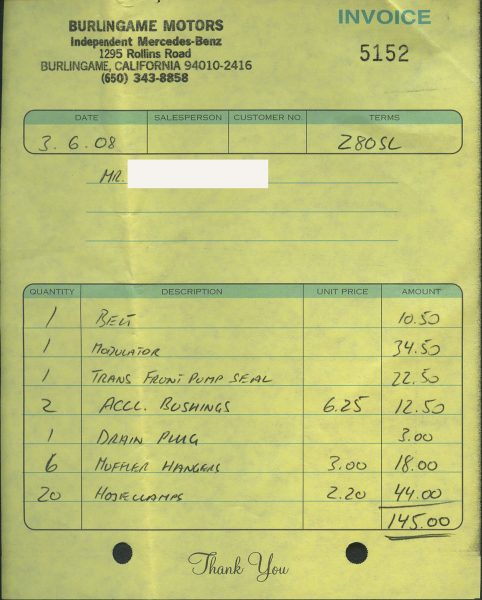 INVOICE
BURLINGAME MOTORS
Independent Mercedes-Benz
1295 Rollins Road
BURLINGAME, CALIFORNIA 94010-2416
(650) 343-8858
5152
DATE SALESPERSON CUSTOMER NO. TERMS
3.6.08 280SL
MR.
QUANTITY DESCRIPTION UNIT PRICE AMOUNT
1 BELT 10.50
1 MODULATOR 34.50
1 TRANS FRONT PUMP SEAL 22.50
2 ACCL. BUSHINGS 6.25 12.50
1 DRAIN PLUG 3.00
6 MUFFLER HANGERS 3.00 18.00
20 HOSECLAMPS 2.20 44.00
145.00
Thank You